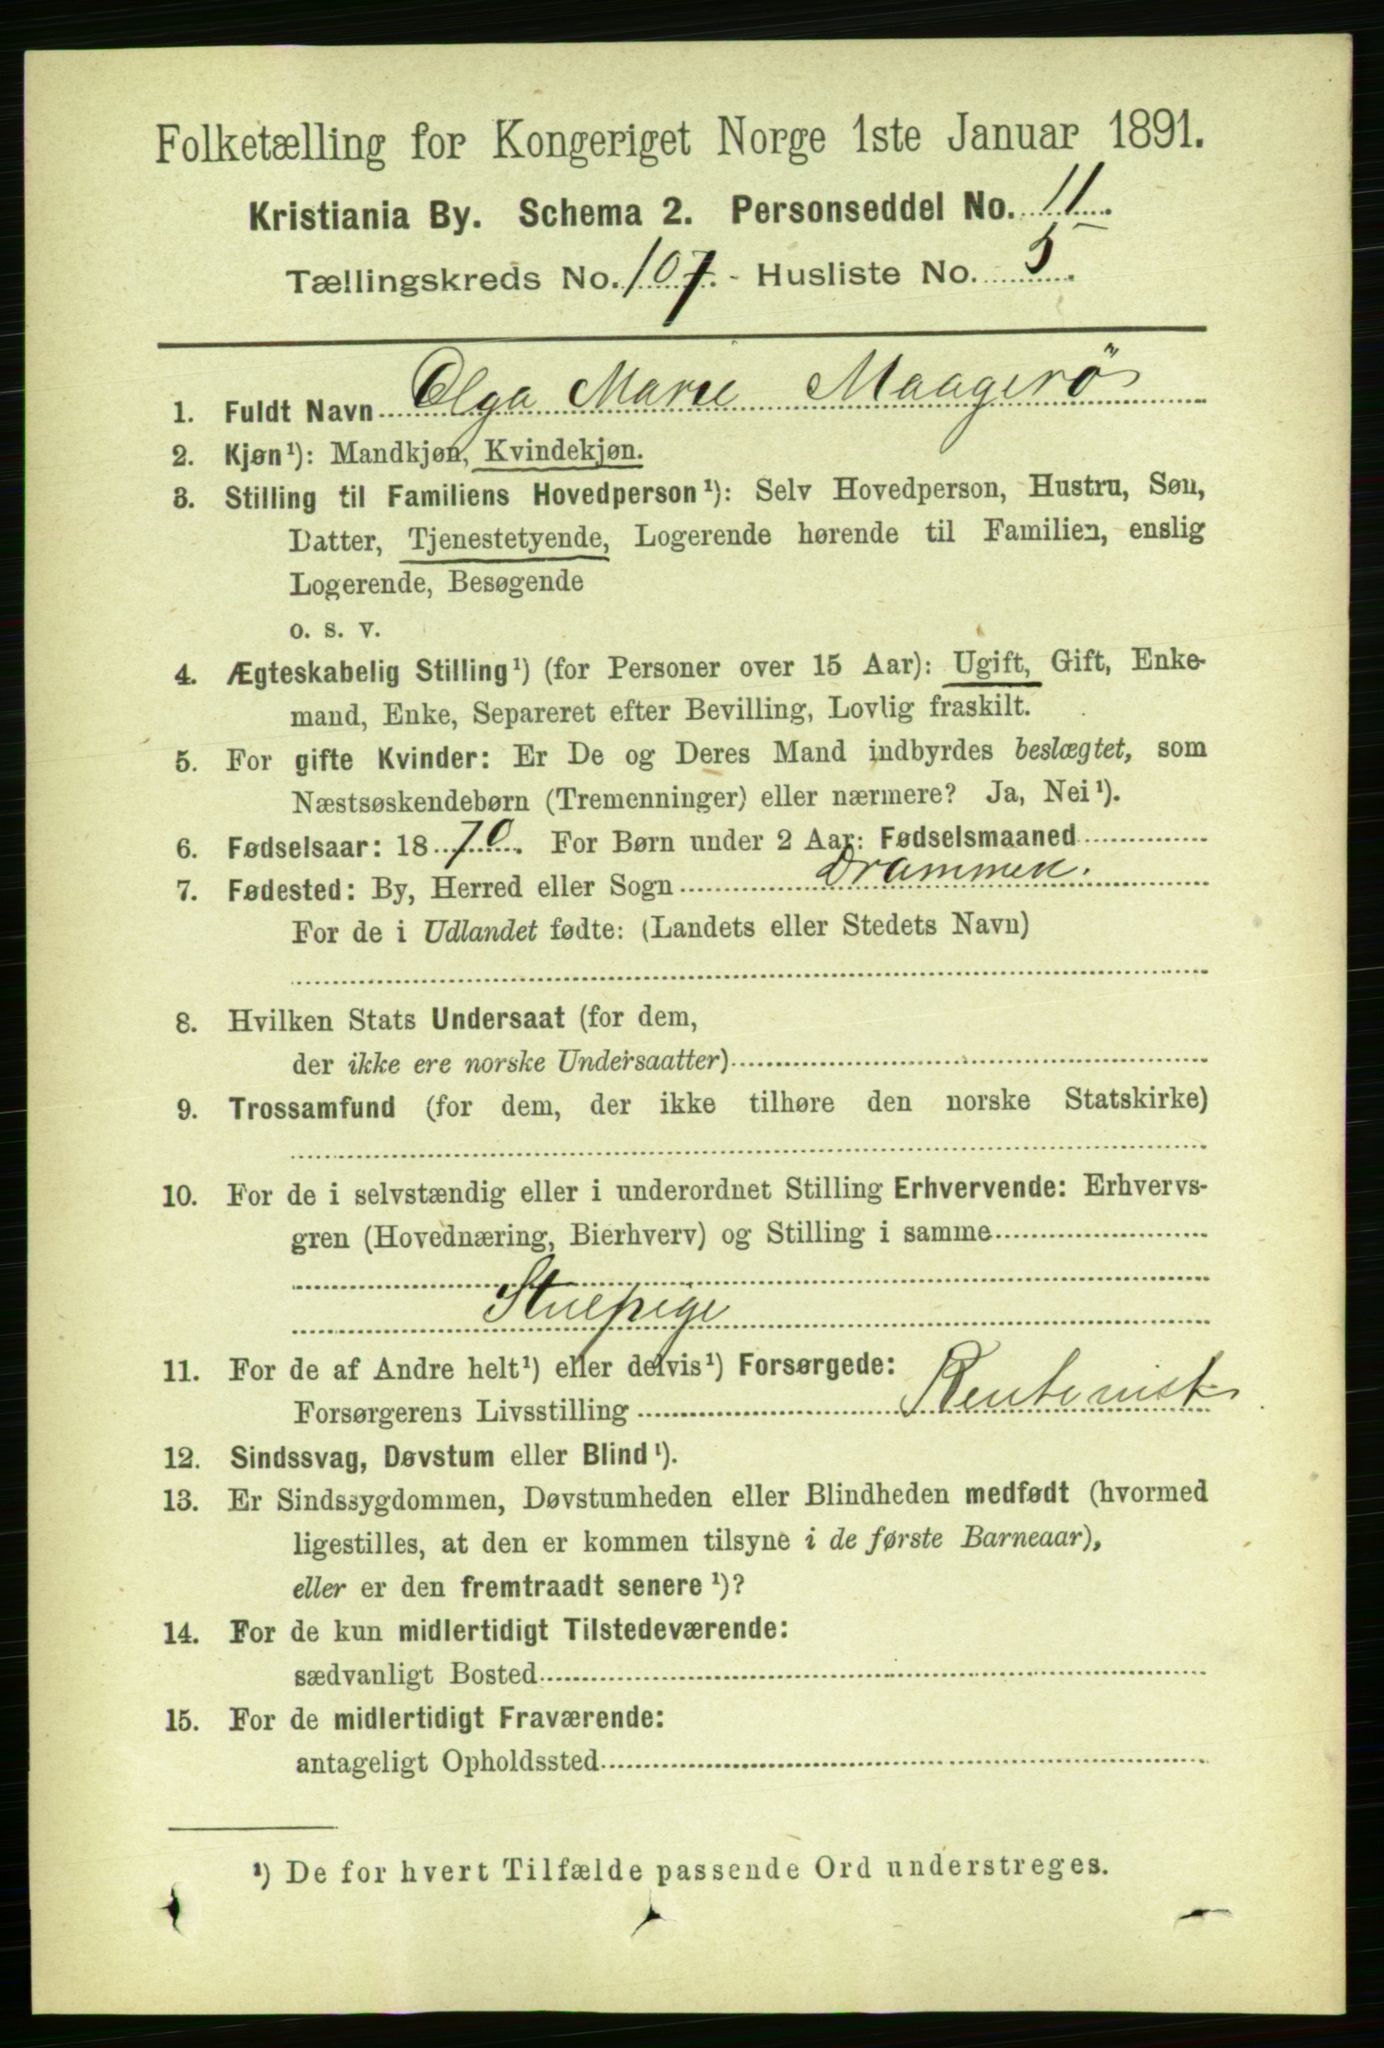 Folketælling for Kongeriget Norge 1ste Januar 1891.
Kristiania By. Schema 2. Personseddel No. 11.
Tællingskreds No. 107. - Husliste No. 5.
1. Fuldt Navn Olga Marie Maagerö
2. Kjøn¹): Mandkjøn, Kvindekjøn.
3. Stilling til Familiens Hovedperson¹): Selv Hovedperson, Hustru, Søn,
Datter, Tjenestetyende, Logerende hørende til Familien, enslig
Logerende, Besøgende
o. s. v.
4. Ægteskabelig Stilling¹) (for Personer over 15 Aar): Ugift, Gift, Enke-
mand, Enke, Separeret efter Bevilling, Lovlig fraskilt.
5. For gifte Kvinder: Er De og Deres Mand indbyrdes beslægtet, som
Næstsøskendebørn (Tremenninger) eller nærmere? Ja, Nei¹).
6. Fødselsaar: 1870. For Børn under 2 Aar: Fødselsmaaned
7. Fødested: By, Herred eller Sogn Drammen.
For de i Udlandet fødte: (Landets eller Stedets Navn)
8. Hvilken Stats Undersaat (for dem,
der ikke ere norske Undersaatter)
9. Trossamfund (for dem, der ikke tilhøre den norske Statskirke)
10. For de i selvstændig eller i underordnet Stilling Erhvervende: Erhvervs-
gren (Hovednæring, Bierhverv) og Stilling i samme
Stuepige
11. For de af Andre helt¹) eller delvis¹) Forsørgede:
Forsørgerens Livsstilling Rentenist
12. Sindssvag, Døvstum eller Blind¹).
13. Er Sindssygdommen, Døvstumheden eller Blindheden medfødt (hvormed
ligestilles, at den er kommen tilsyne i de første Barneaar),
eller er den fremtraadt senere¹)?
14. For de kun midlertidigt Tilstedeværende:
sædvanligt Bosted
15. For de midlertidigt Fraværende:
antageligt Opholdssted
¹) De for hvert Tilfælde passende Ord understreges.